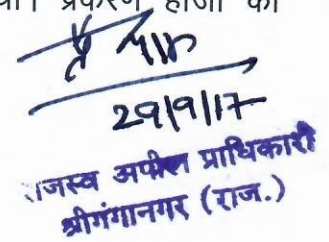 प्रकरण हाजा का
29/9/17
राजस्व अपील प्राधिकारी
श्रीगंगानगर (राज.)